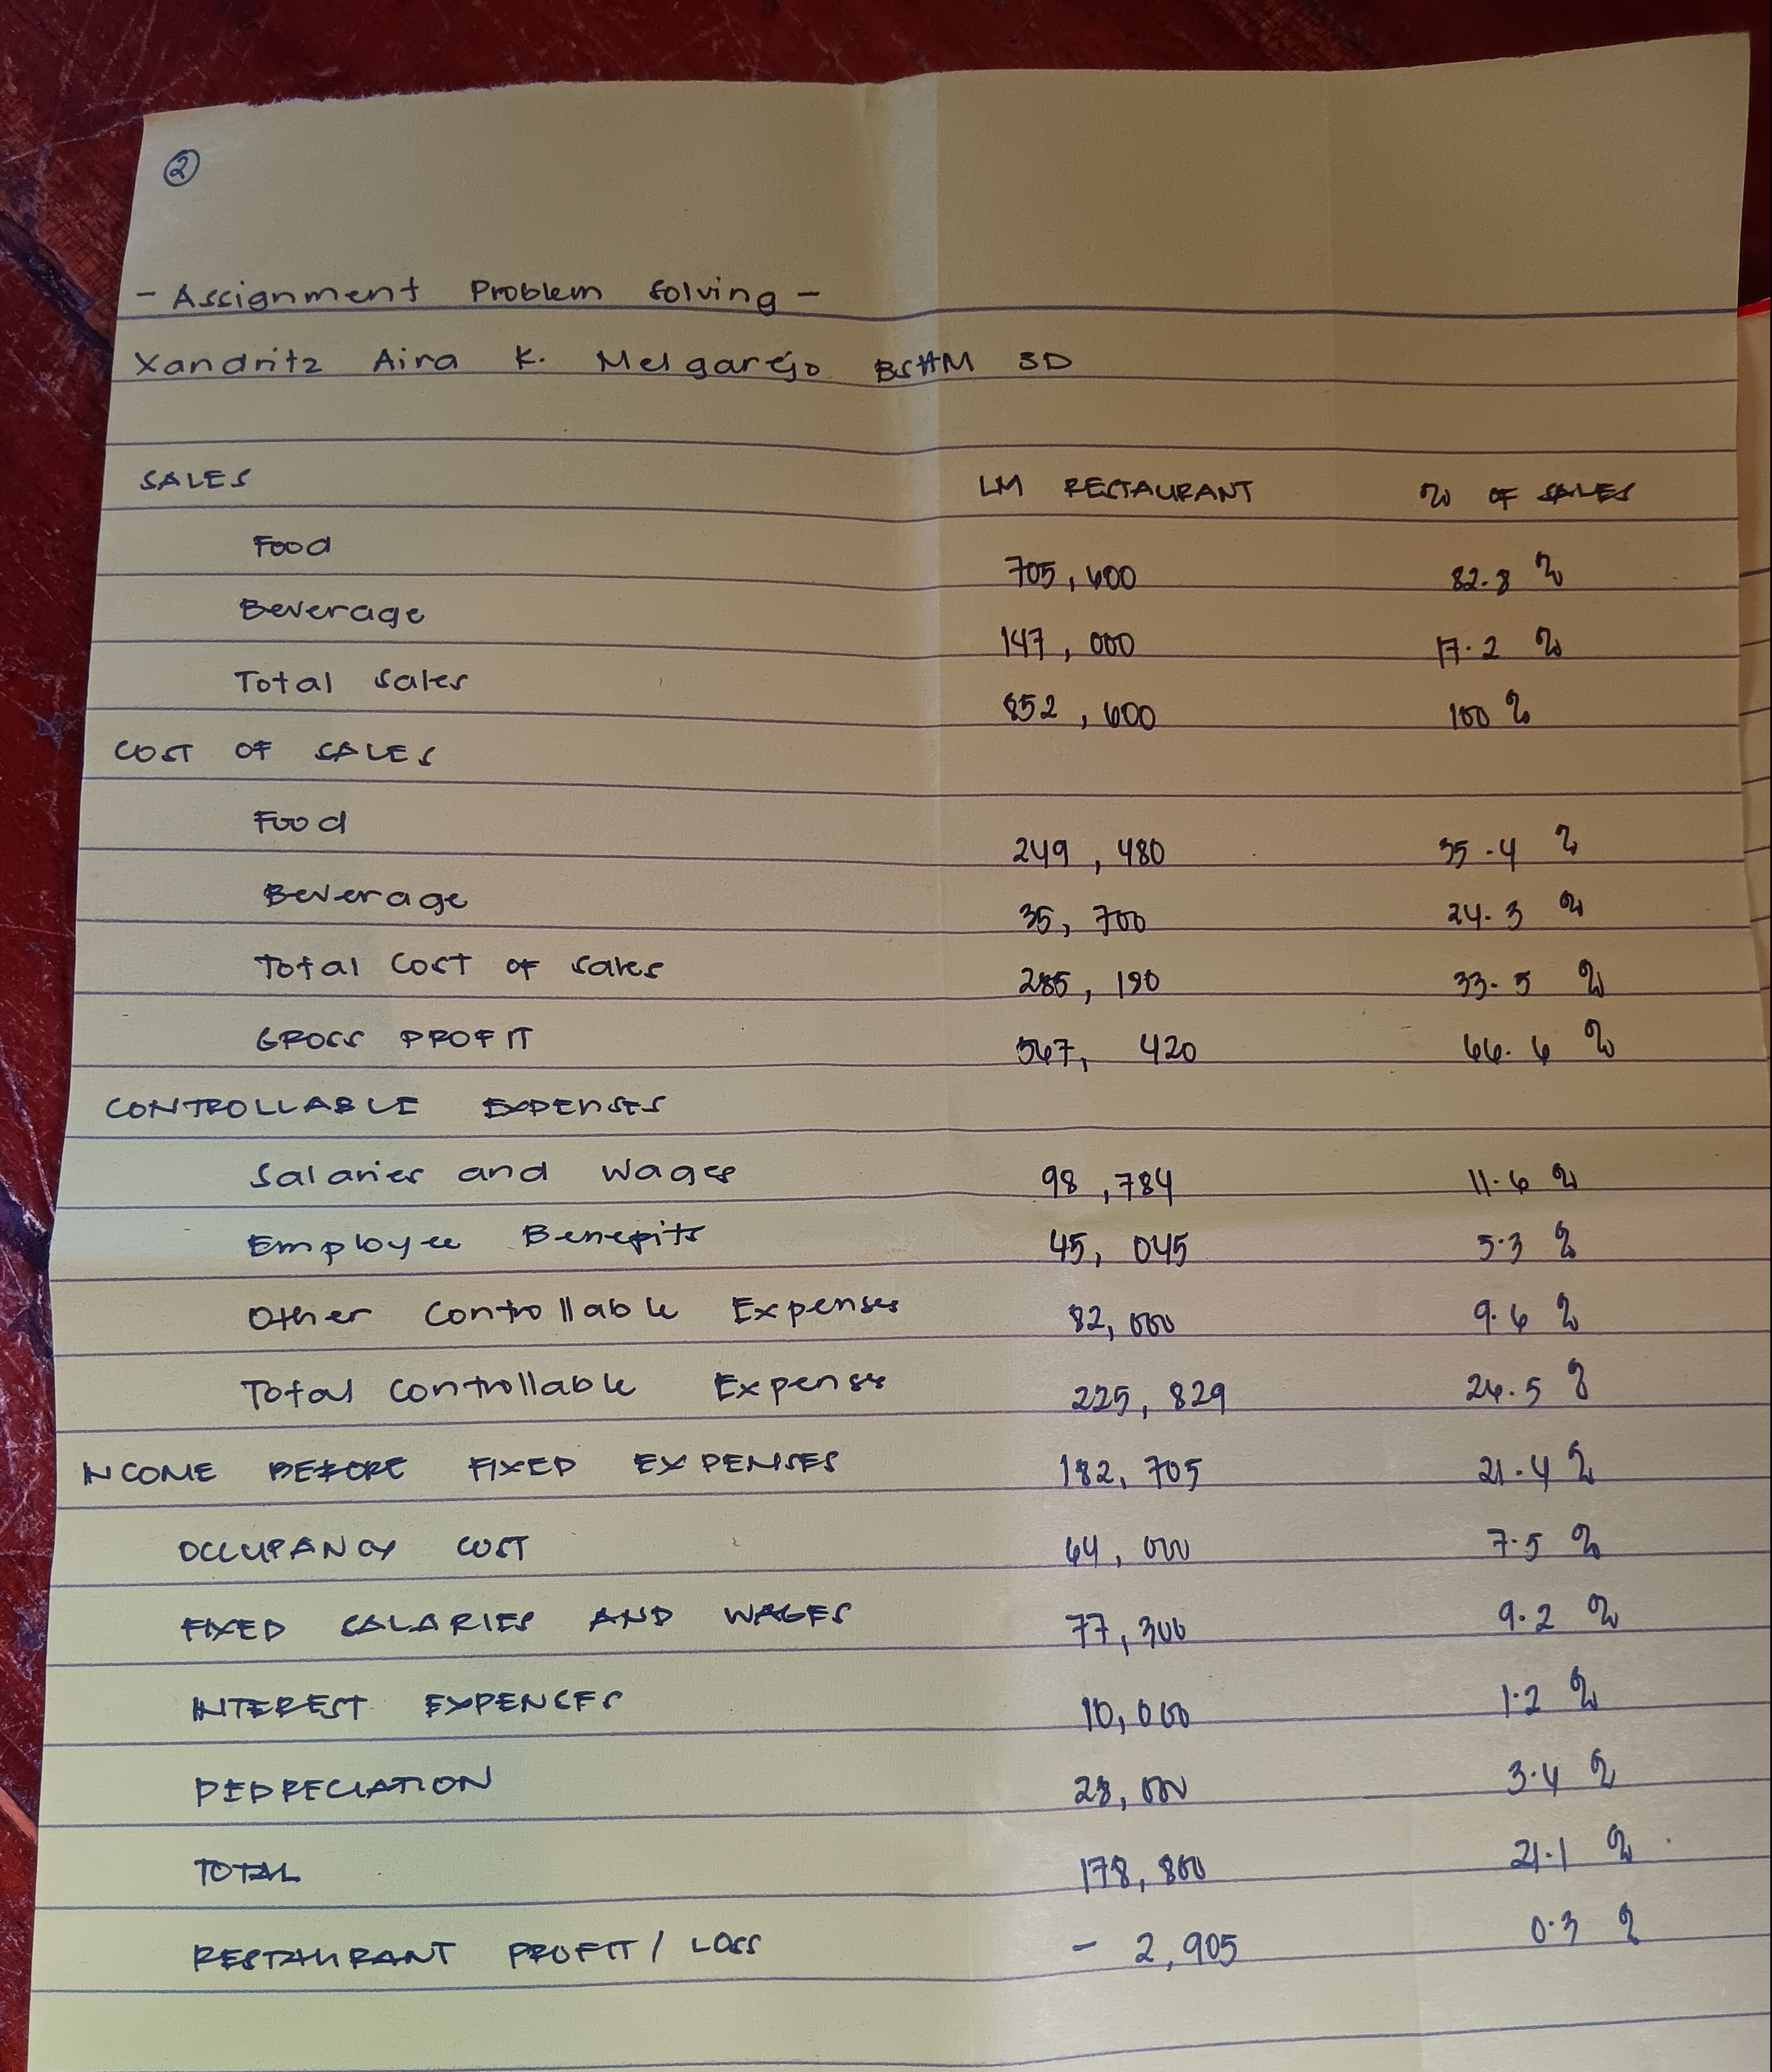 2
- Assignment Problem Solving -
Xandritz Aira K. Melgarejo BSHM 3D
SALES LM RESTAURANT % OF SALES
Food 705,600 82.8 %
Beverage 147,000 17.2 %
Total Sales 852,600 100 %
COST OF SALES
Food 249,480 35.4 %
Beverage 35,700 24.3 %
Total Cost of Sales 285,180 33.5 %
GROSS PROFIT 567,420 66.6 %
CONTROLLABLE EXPENSES
Salaries and Wages 98,784 11.6 %
Employee Benefits 45,045 5.3 %
Other Controllable Expenses 82,000 9.6 %
Total Controllable Expenses 225,829 26.5 %
INCOME BEFORE FIXED EXPENSES 182,705 21.4 %
OCCUPANCY COST 64,000 7.5 %
FIXED SALARIES AND WAGES 77,300 9.2 %
INTEREST EXPENSES 10,000 1.2 %
DEPRECIATION 28,000 3.4 %
TOTAL 178,800 21.1 %
RESTAURANT PROFIT / LOSS - 2,905 0.3 %